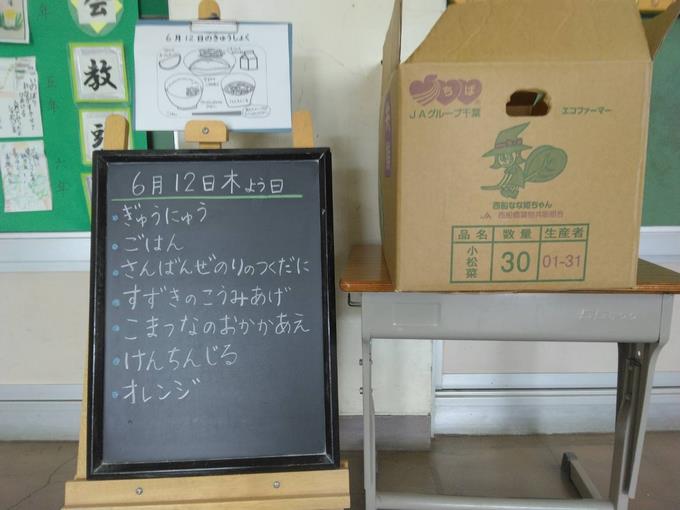 6月12日のきゅうしょく
教
五年
六年
6月12日木よう日
ぎゅうにゅう
ごはん
さんばんぜのりのつくだに
すずきのこうみあげ
こまつなのおかかあえ
けんちんじる
オレンジ
ちば
JAグループ千葉
エコファーマー
西船なな姫ちゃん
JA 西船橋葉物共販組合
品名 数量 生産者
小松菜 30 01-31